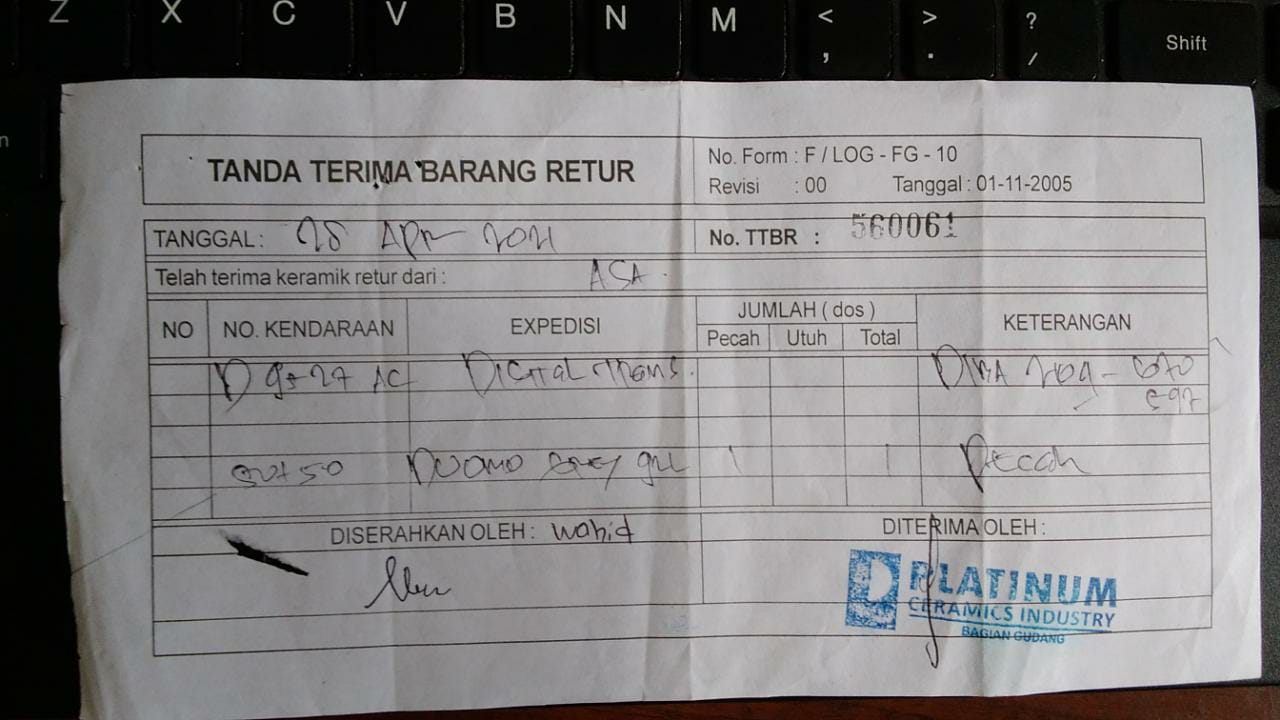 Z X C V B N M < , > . ? / Shift
TANDA TERIMA BARANG RETUR
No. Form : F / LOG - FG - 10
Revisi : 00 Tanggal : 01-11-2005
TANGGAL : 28 Apr 2021
No. TTBR : 560061
Telah terima keramik retur dari : ASA
NO NO. KENDARAAN EXPEDISI JUMLAH ( dos ) KETERANGAN
Pecah Utuh Total
AC Digital Trans.
50x50 Duomo Grey 1 1 Pecah
DISERAHKAN OLEH : Wahid
DITERIMA OLEH :
PLATINUM
CERAMICS INDUSTRY
BAGIAN GUDANG